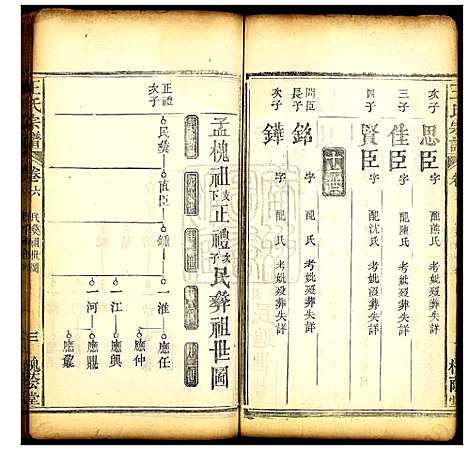 次子 思臣 字 配燕氏 考妣沒葬失詳
三子 佳臣 字 配陳氏 考妣沒葬失詳
四子 賢臣 字 配沈氏 考妣沒葬失詳
十世
問臣長子 銘 字 配氏 考妣沒葬失詳
次子 鏵 字 配氏 考妣沒葬失詳
孟槐祖支下正禮次子民彝祖世圖
正禮次子
民彝
直臣
鍾
淮
應任
應仲
江
應興
河
應龍
王氏宗譜
卷六
民彝祖世圖
三
槐蔭堂